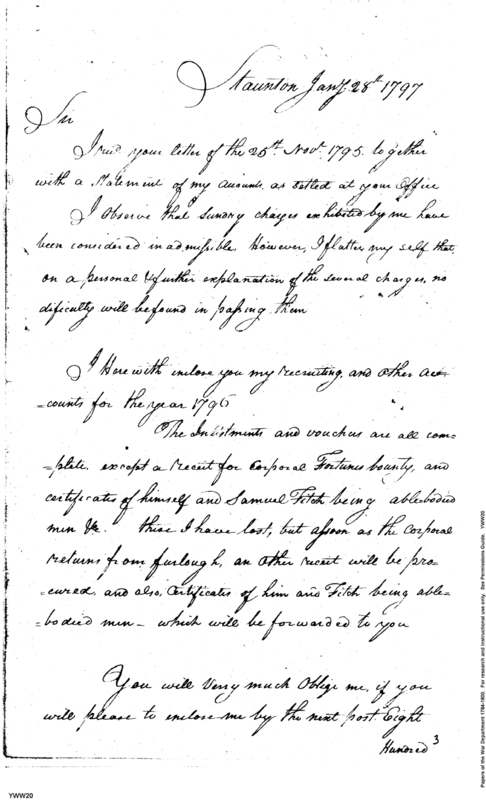 Staunton Jany. 28th 1797
Sir
I recd your letter of the 25th. Novr. 1795. together
with a Statement of my accounts, as settled at your Office
I observe that sundry charges exhibited by me have
been considered inadmissible. However, I flatter my self that
on a personal & further explanation of the several charges, no
dificulty will be found in passing them
I Here with inclose you my recruiting, and other ac=
=counts for the year 1796
The Inlistments and vouchers are all com=
=plete, except a receit for Corporal Fortunes bounty, and
certificates of himself and Samuel Fitch being ablebodied
men &c. these I have lost, but assoon as the Corporal
returns from furlough, an other receit will be pro=
=cured, and also, Certificates of him and Fitch being able=
=bodied men – which will be forwarded to you
You will Very much Oblige me, if you
will please to inclose me by the next post Eight
Hundred
3
YWW20
Papers of the War Department 1784-1800. For research and instructional use only. See Permissions Guide. YWW20